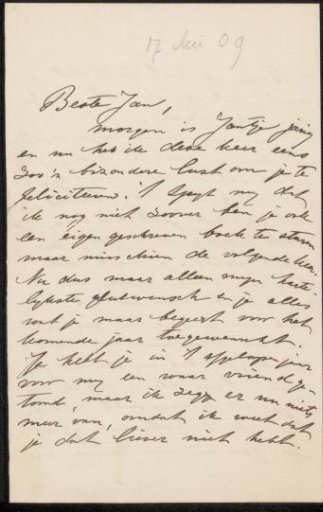 17 Mei 09
Beste Jan,
morgen is Jantje jarig
en nu heb ik deze keer eens
zoo'n bizondere lust om je te
feliciteeren. 't Spijt mij dat
ik nog niet zoover ben je ook
een eigen geschreven boek te sturen
maar misschien de volgende keer.
Nu dus maar alleen mijn harte-
lijkste gelukwensch en je alles
wat je maar begeert voor het
komende jaar toegewenscht.
Je hebt je in 't afgeloopen jaar
voor mij een waar vriend ge-
toond, maar ik zeg er nu niets
meer van, omdat ik weet dat
je dat liever niet hebt.